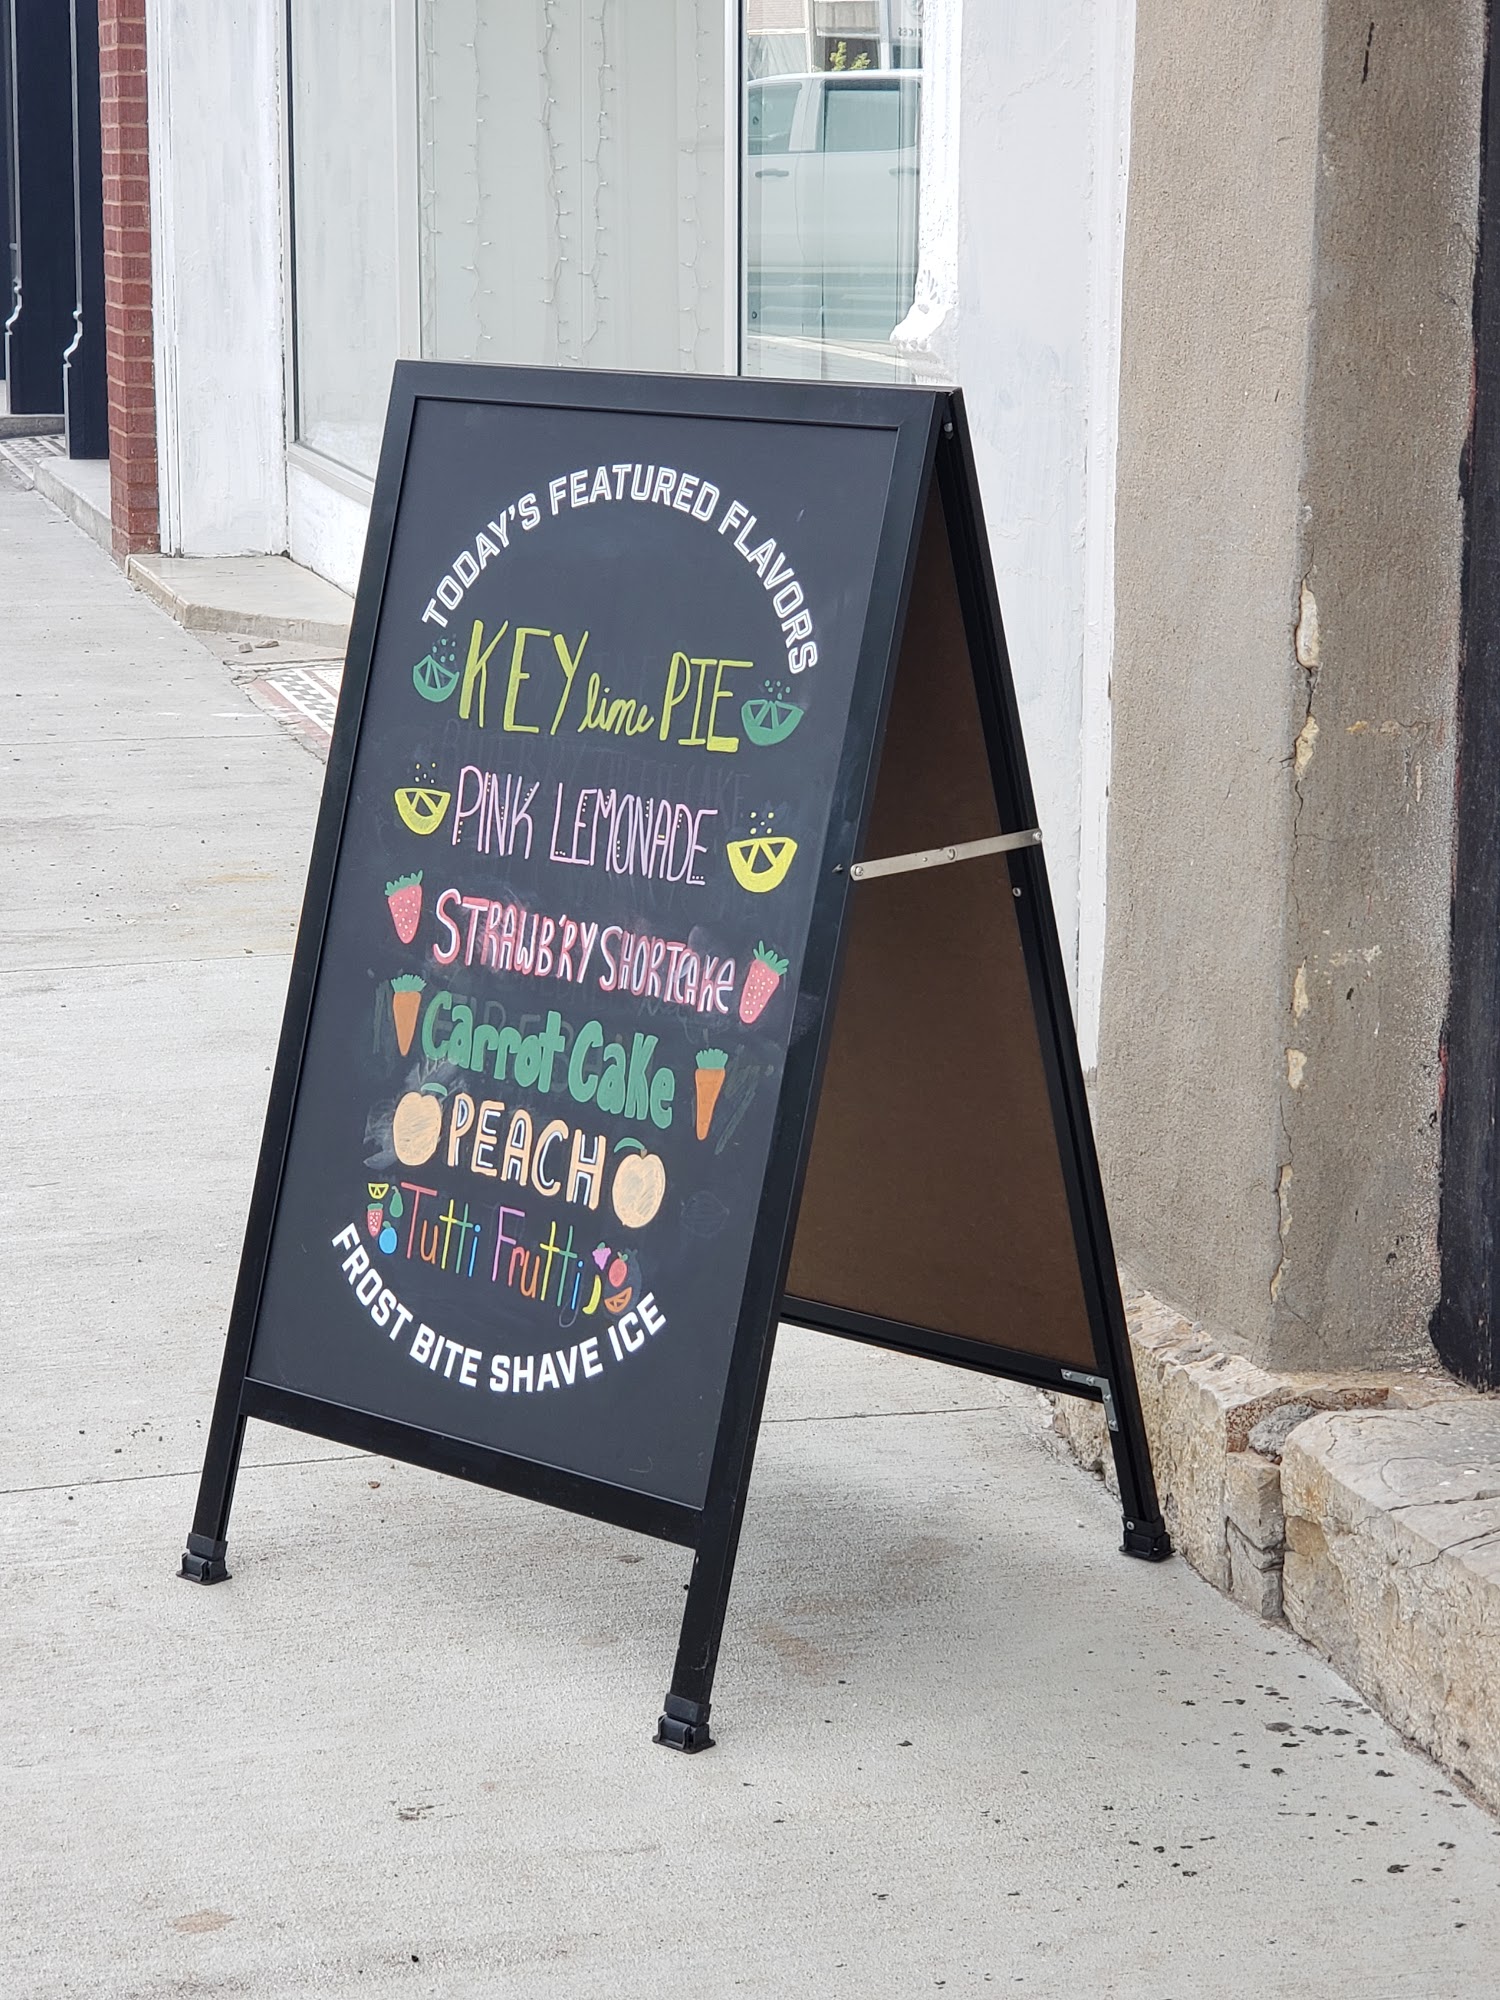 TODAY'S FEATURED FLAVORS
KEY lime PIE
PINK LEMONADE
STRAWB'RY SHORTCAKE
Carrot Cake
PEACH
Tutti Frutti
FROST BITE SHAVE ICE